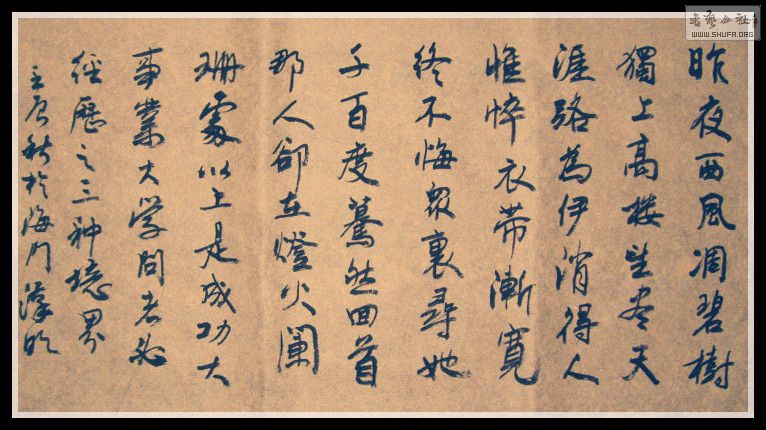 昨夜西風凋碧樹
獨上高樓望盡天
涯路為伊消得人
憔悴衣帶漸寬
終不悔眾裏尋她
千百度驀然回首
那人卻在燈火闌
珊處以上是成功大
事業大学問者必
經歷之三种境界
壬辰秋於海门
書藝公社
WWW.SHUFA.ORG